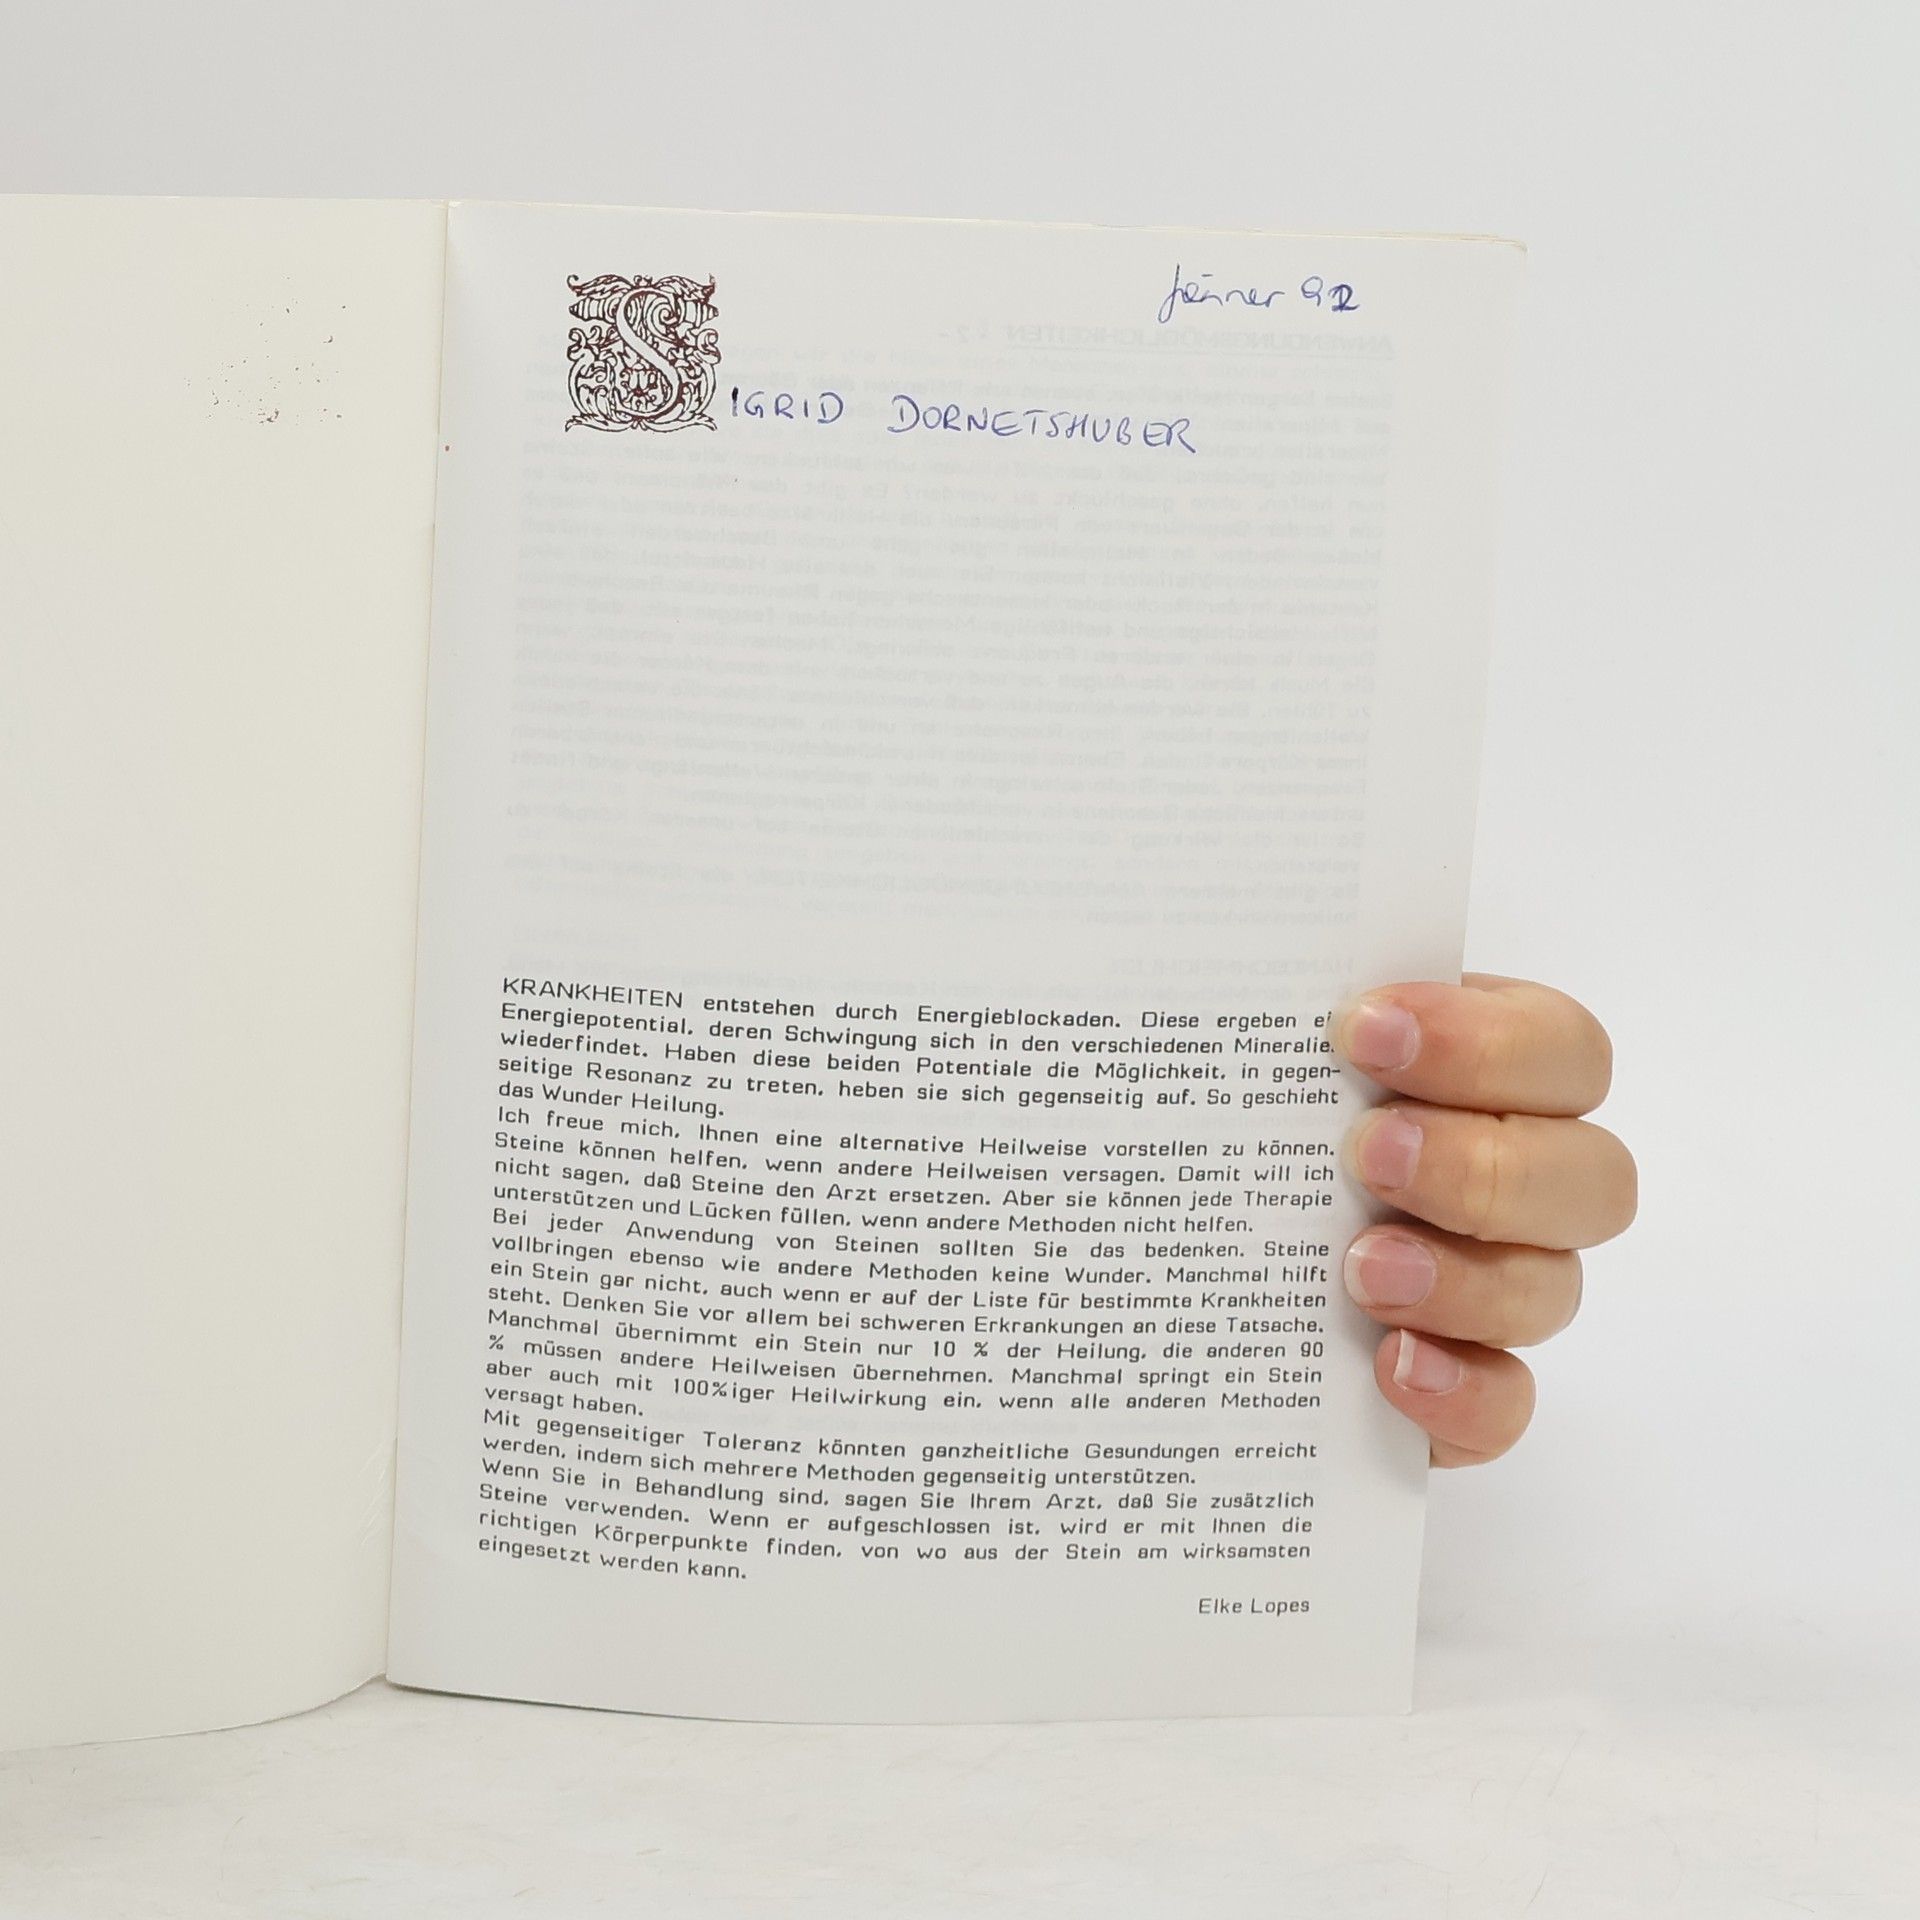 Jänner 92
SIGRID DORNETSHUBER
KRANKHEITEN entstehen durch Energieblockaden. Diese ergeben
Energiepotential, deren Schwingung sich in den verschiedenen
wiederfindet. Haben diese beiden Potentiale die Möglichkeit, in gegen-
seitige Resonanz zu treten, heben sie sich gegenseitig auf. So geschieht
das Wunder Heilung.
Ich freue mich, Ihnen eine alternative Heilweise vorstellen zu können.
Steine können helfen, wenn andere Heilweisen versagen. Damit will ich
nicht sagen, daß Steine den Arzt ersetzen. Aber sie können jede Therapie
unterstützen und Lücken füllen, wenn andere Methoden nicht helfen.
Bei jeder Anwendung von Steinen sollten Sie das bedenken. Steine
vollbringen ebenso wie andere Methoden keine Wunder. Manchmal hilft
ein Stein gar nicht, auch wenn er auf der Liste für bestimmte Krankheiten
steht. Denken Sie vor allem bei schweren Erkrankungen an diese Tatsache.
Manchmal übernimmt ein Stein nur 10 % der Heilung, die anderen 90
% müssen andere Heilweisen übernehmen. Manchmal springt ein Stein
aber auch mit 100%iger Heilwirkung ein, wenn alle anderen Methoden
versagt haben.
Mit gegenseitiger Toleranz könnten ganzheitliche Gesundungen erreicht
werden, indem sich mehrere Methoden gegenseitig unterstützen.
Wenn Sie in Behandlung sind, sagen Sie Ihrem Arzt, daß Sie zusätzlich
Steine verwenden. Wenn er aufgeschlossen ist, wird er mit Ihnen die
richtigen Körperpunkte finden, von wo aus der Stein am wirksamsten
eingesetzt werden kann.
Elke Lopes